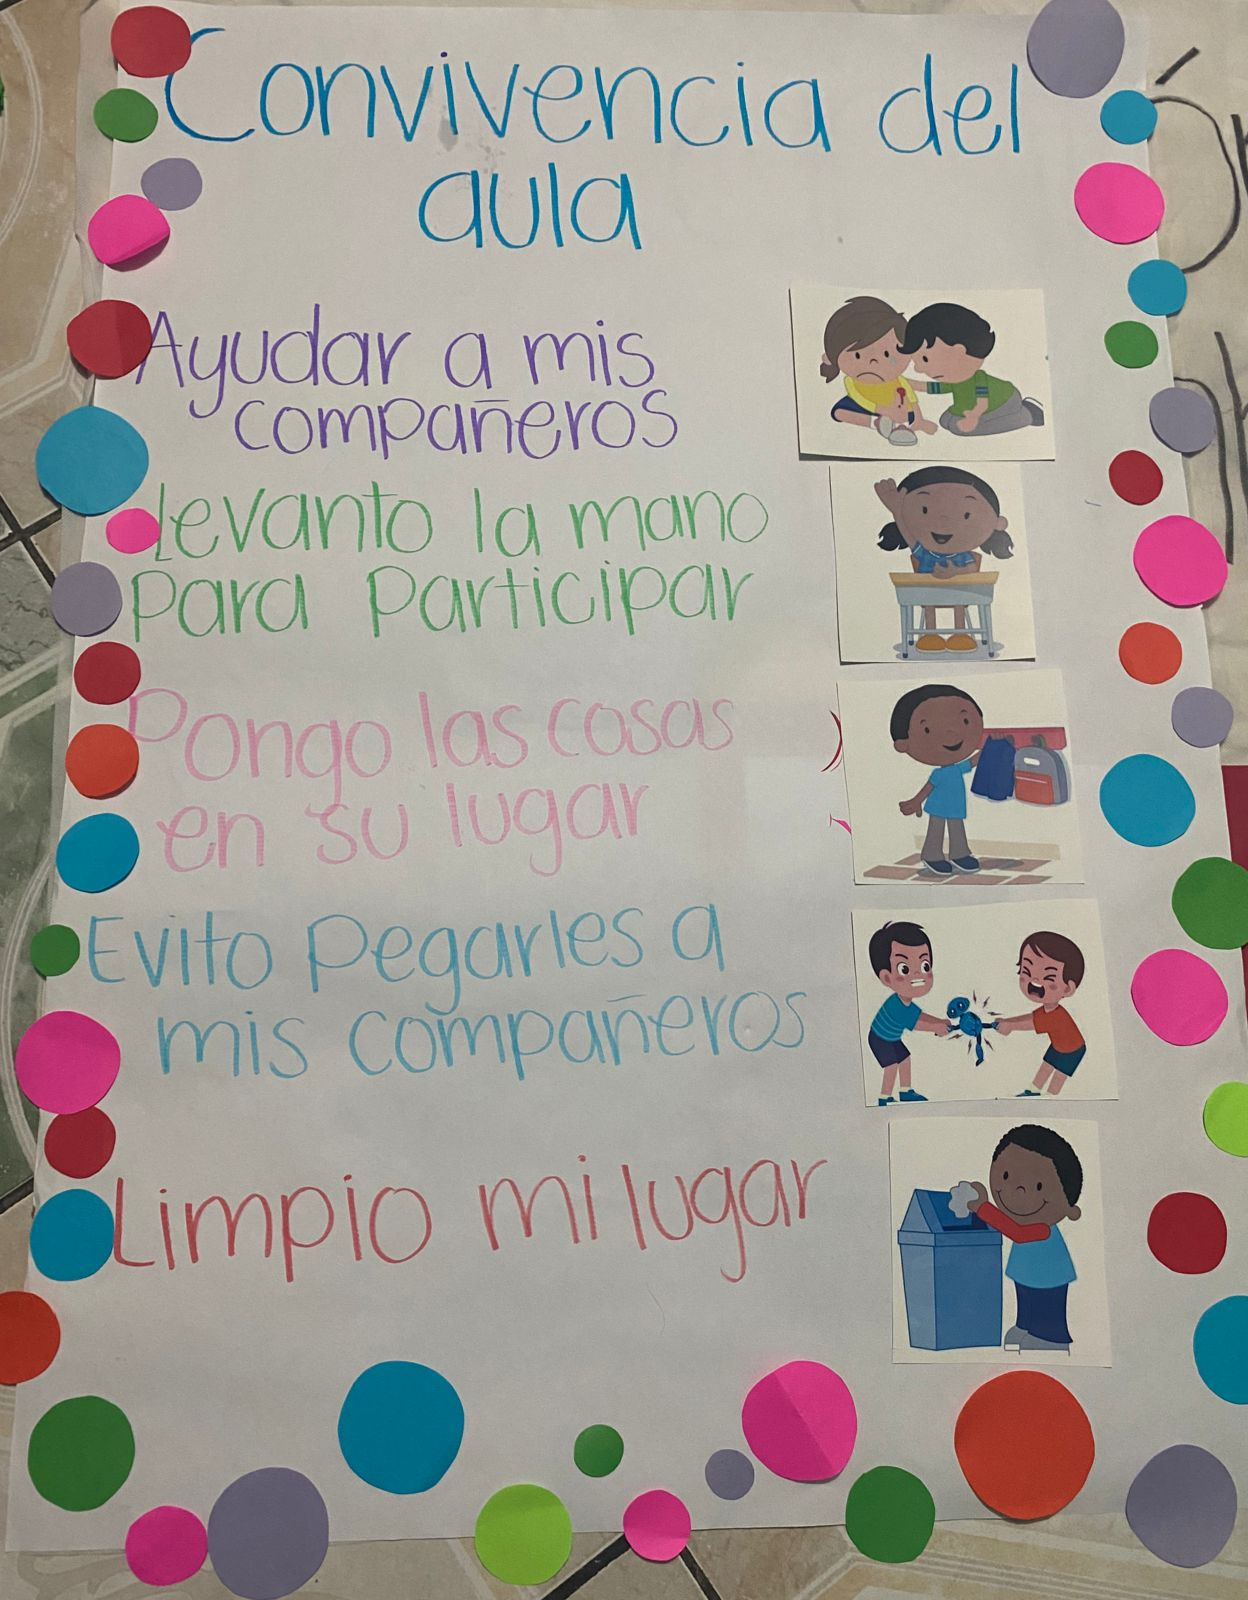 Convivencia del
aula
Ayudar a mis
compañeros
Levanto la mano
para participar
Pongo las cosas
en su lugar
Evito pegarles a
mis compañeros
Limpio mi lugar